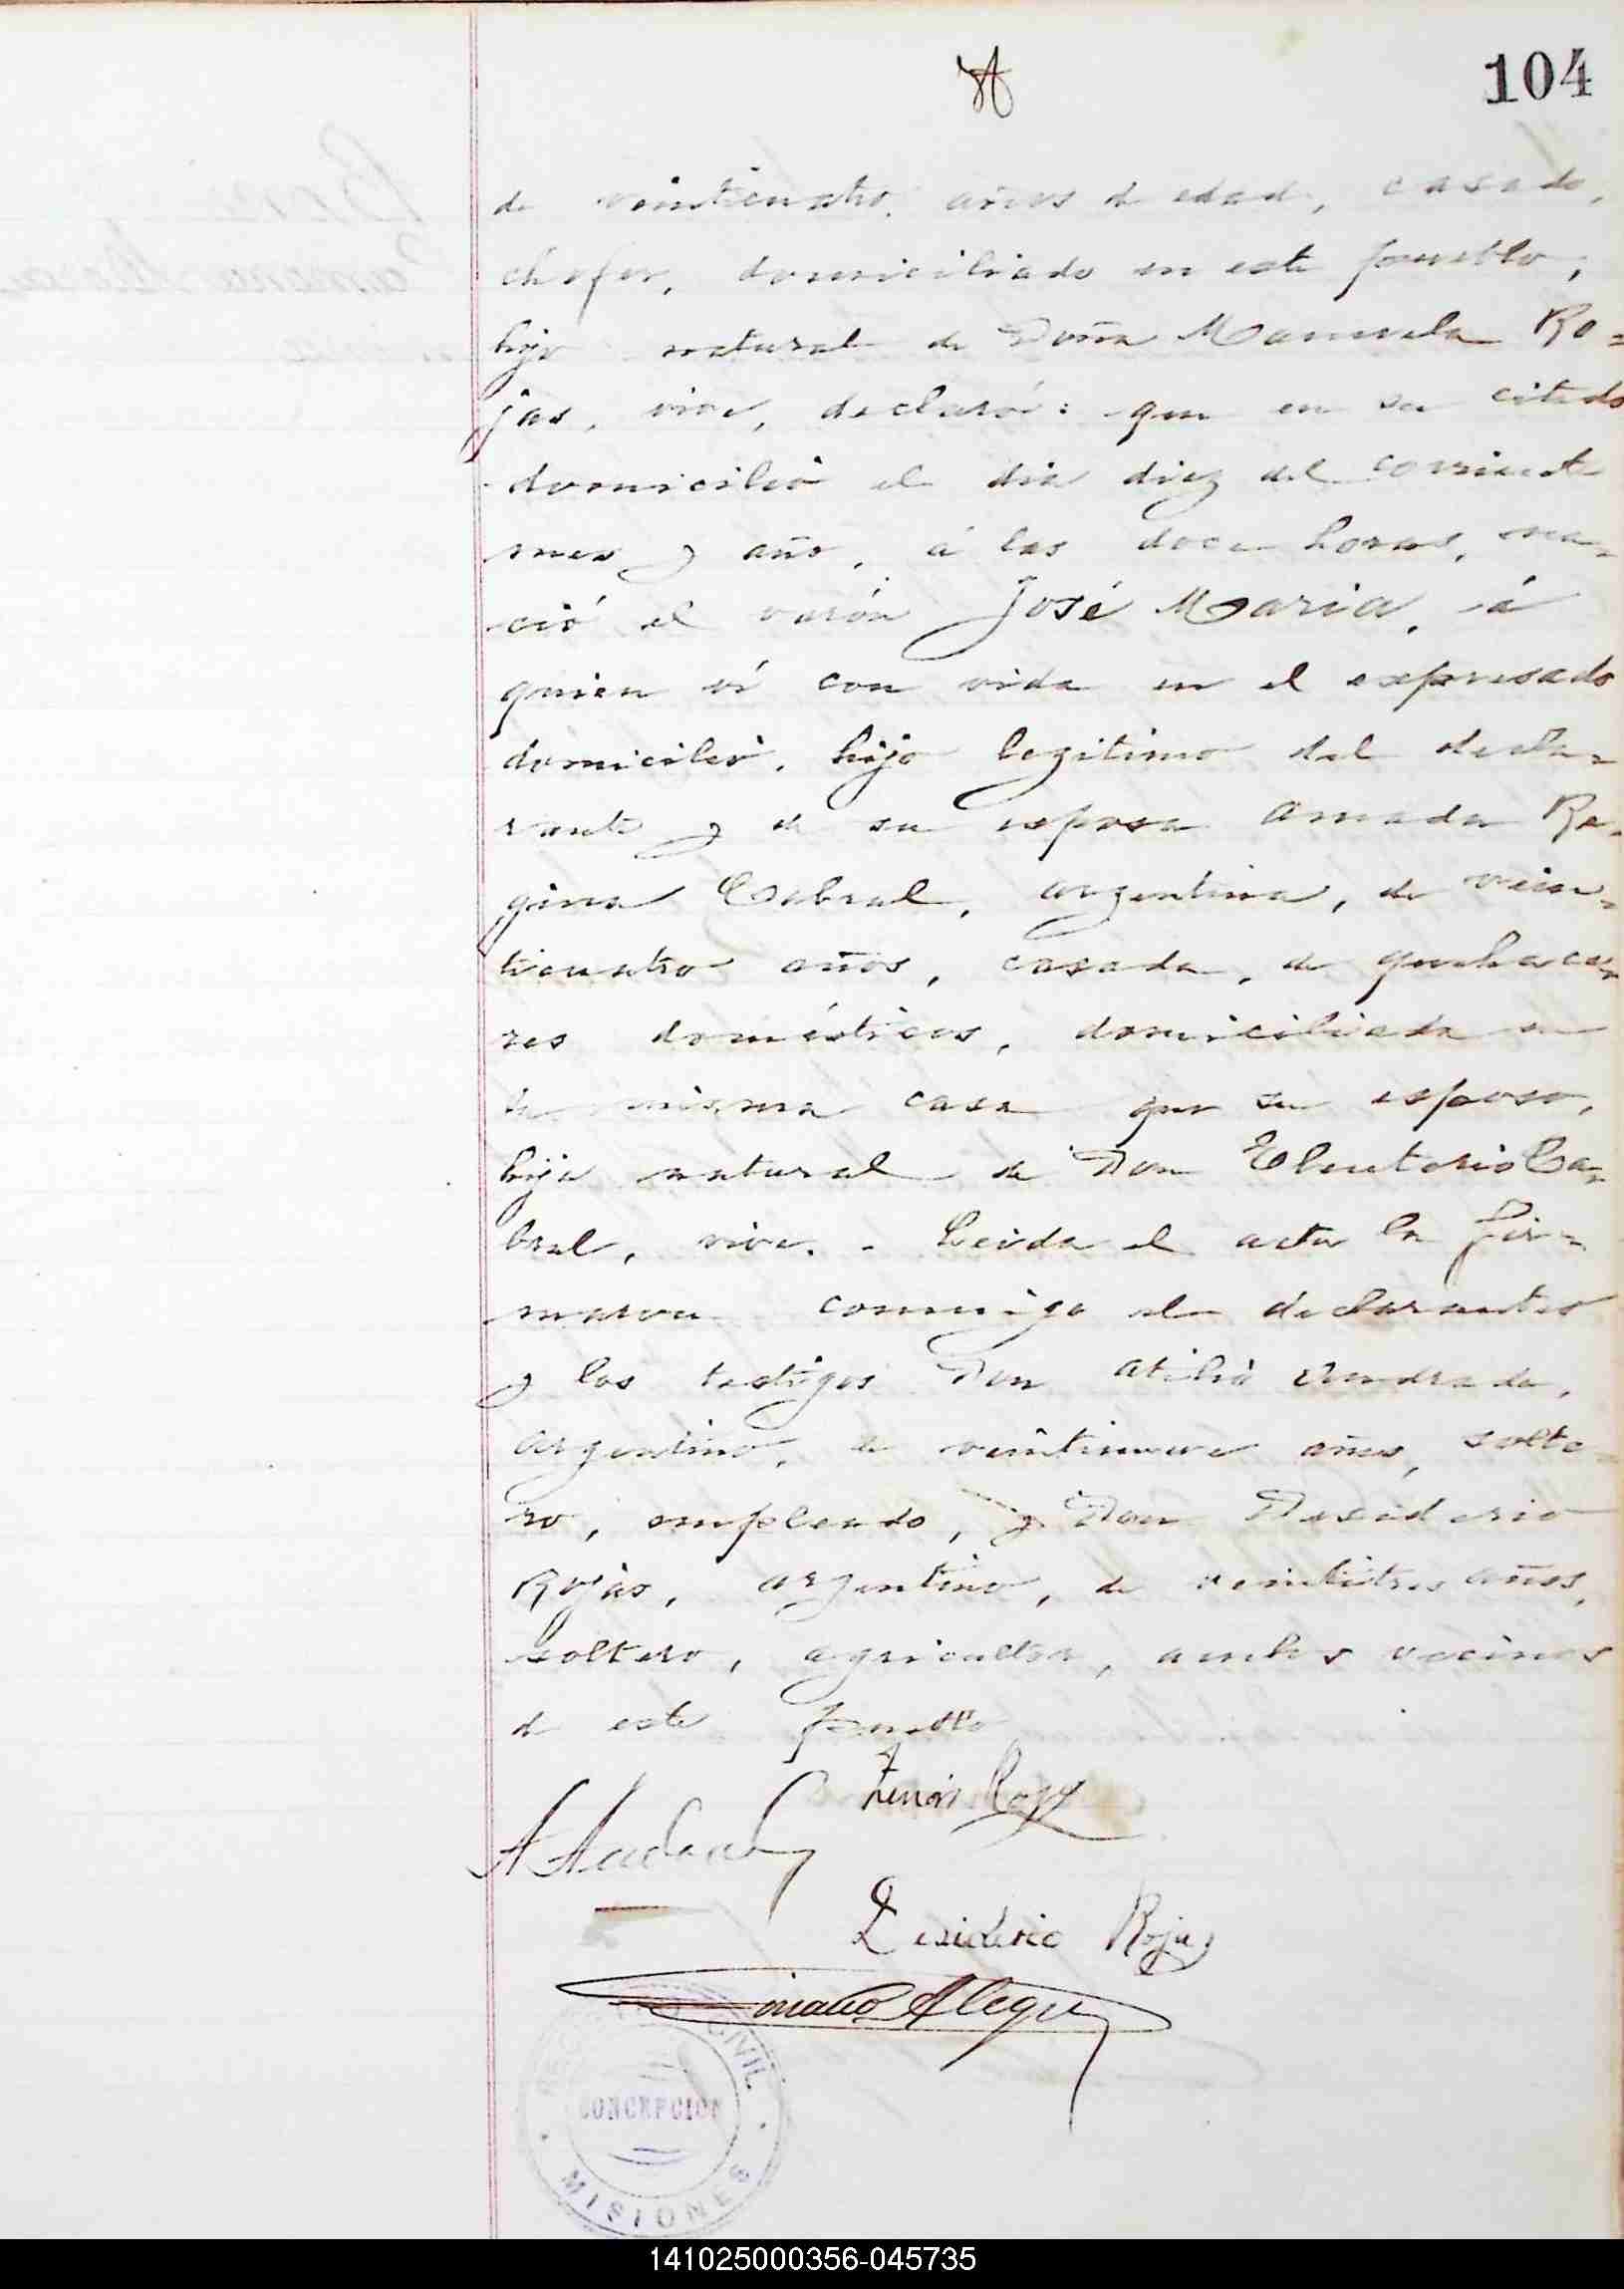 104
de veinticuatro años de edad, casado,
chofer, domiciliado en este pueblo,
hijo natural de Doña Manuela Ro=
jas, vive, declaró: que en su citado
domicilio el dia diez del corriente
mes y año, á las doce horas, na-
ció el varón José Maria, á
quien ví con vida en el expresado
domicilio, hijo legitimo del decla-
rante y de su esposa Amada Re-
gina Cabral, argentina, de vein-
ticuatro años, casada, de quehace-
res domésticos, domiciliada en
la misma casa que su esposo,
hija natural de Don Eleuterio Ca-
bral, vive. - Leida el acta la fir-
maron conmigo el declarante
y los testigos Don Atilio Andrade,
argentino, de veintinueve años, solte-
ro, empleado, y Don Desiderio
Rojas, argentino, de veintitres años,
soltero, agricultor, ambos vecinos
de este pueblo
Zenón Rojas
A Andrade
Desiderio Rojas
Alegre
REGISTRO CIVIL
CONCEPCION
MISIONES
141025000356-045735